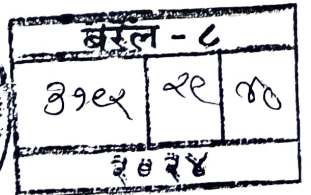 बरल - ८
३१९२ २९ ४०
२०२४